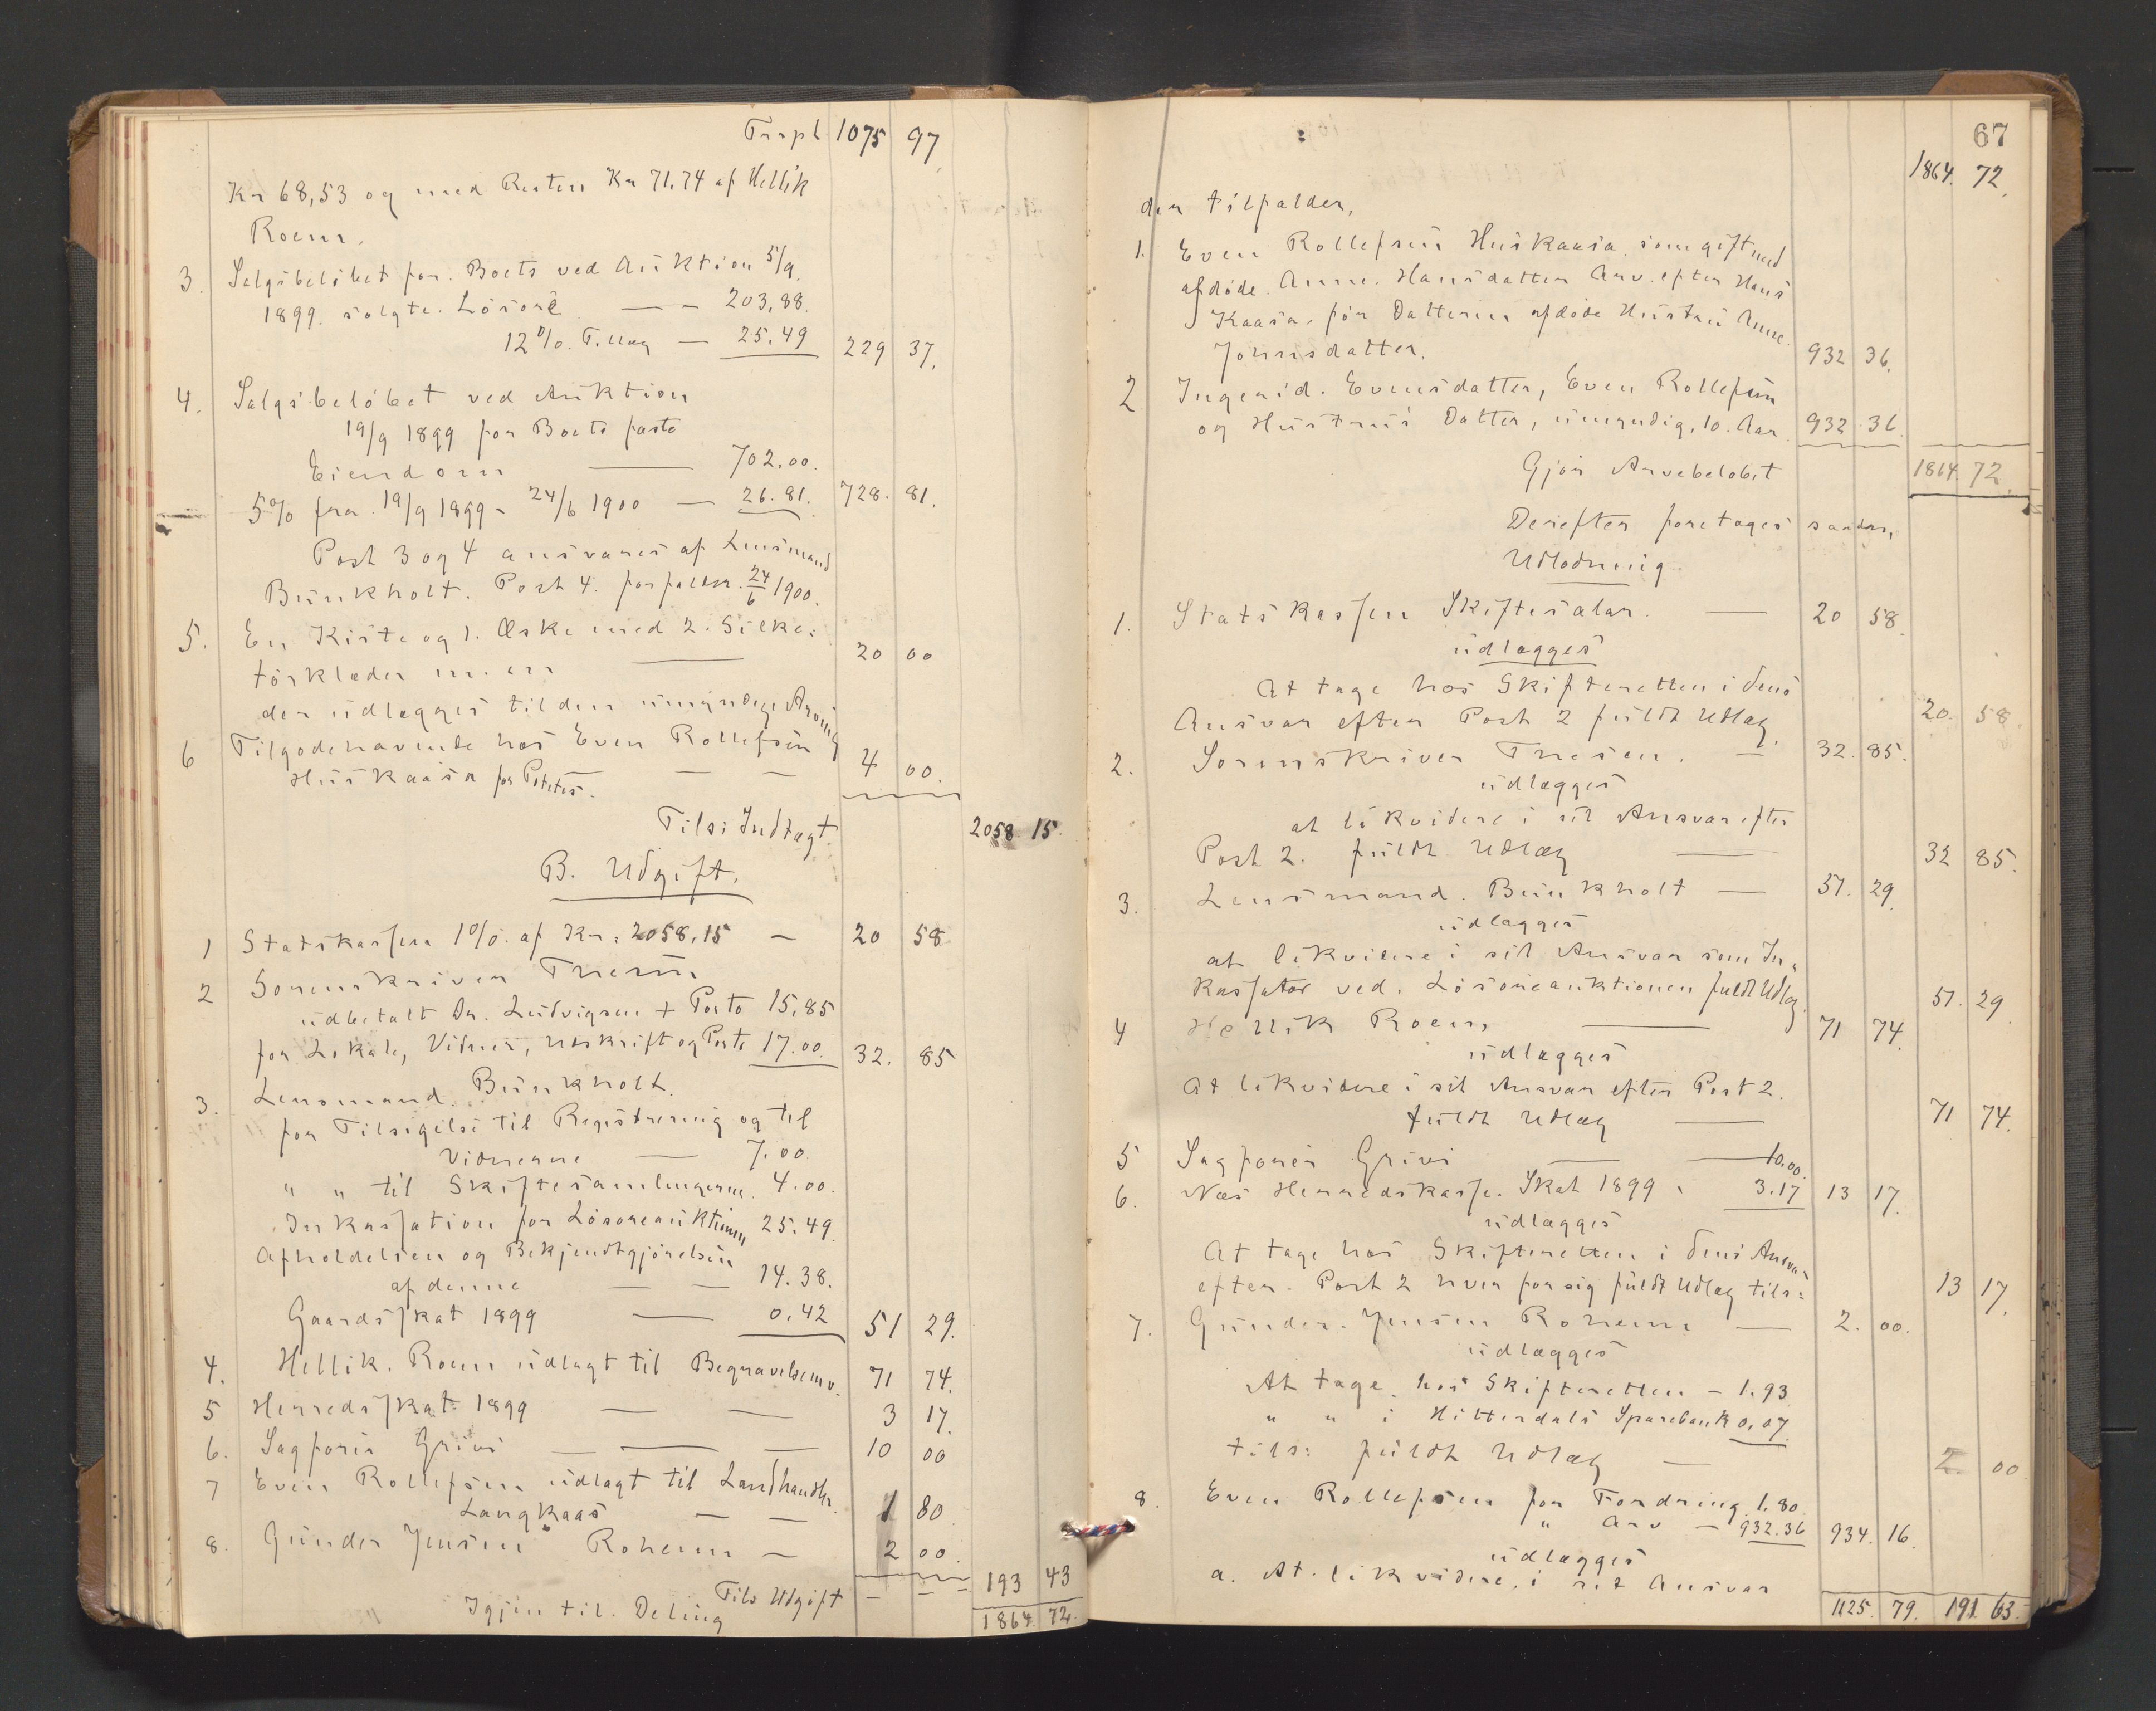 Trspt 1075 97
Kr 68,53 og med Renten Kr 71.74 af Hellik
Roem.
3. Salgsbeløbet for Boets ved Auktion 5/9
1899 solgte Løsøre — - 203,88.
12 % Tillæg — 25.49 229 37.
4. Salgsbeløbet ved Auktion
19/9 1899 for Boets faste
Eiendom — 702.00.
5% fra 19/9 1899 - 24/6 1900 — 26.81. 728. 81.
Post 3 og 4 ansvares af Lensmand
Bunkholt. Post 4 forfalder 24/6 1900.
5. En Kiste og 1 Æske med 2 Silke-
tørklæder m. m — 20 00
der udlægges til den umyndige Arving
6 Tilgodehavende hos Even Rollefsen
Huskaasa for Potetes. — — 4 00.
Tils: Indtægt. 2058 15.
B. Udgift.
1 Statskassen 1 % af Kr. 2058.15 - 20 58
2 Sorenskriver Tresen
udbetalt Dr. Ludvigsen + Porto 15,85
for Lokale, Vidner, Udskrift og Porto 17.00. 32. 85
3. Lensmand Bunkholt
for Tilsigelse til Registrering og til
Vidnerne — 7.00.
" " til Skiftesamlingerne. 4.00.
Inkassation for Løsøreauktionen 25.49.
Afholdelsen og Bekjendtgjørelsen
af denne — — 14.38.
Gaardsskat 1899 — 0.42 51 29.
4. Hellik Roem udlagt til Begravelse m. v. 71 74.
5 Herredsskat 1899 — — 3 17.
6. Sagfører Grivi — — — 10 00
7 Even Rollefsen udlagt til Landhandler
Langkaas — — 1 80.
8. Gunder Jensen Rohem — 2 00.
Tils Udgift - - - 193 43
Igjen til Deling 1864. 72.
67
1864. 72.
der tilfalder,
1. Even Rollefsen Huskaasa som gift med
afdøde Anne Hansdatter Arv efter Hans
Kaasa, for Datteren afdøde Hustru Anne
Jonnsdatter. 932 36.
2 Ingerid Evensdatter, Even Rollefsen
og Hustrus Datter, umyndig, 10 Aar 932 36
Gjør Arvebeløbet 1864. 72.
Derefter foretages saadan
Udlodning
1. Statskassen Skiftesalær. — 20 58.
udlægges
At tage hos Skifteretten i dens
Ansvar efter Post 2 fuldt Udlæg. 20. 58
2. Sorenskriver Tresen. — 32. 85.
udlægges
at likvidere i sit Ansvar efter
Post 2. fuldt Udlæg — 32 85.
3. Lensmand Bunkholt — 51. 29.
udlægges
at likvidere i sit Ansvar som In-
kassator ved Løsøreauktionen fuldt Udlæg. 51. 29
4 Hellik Roem — 71 74.
udlægges
At likvidere i sit Ansvar efter Post 2.
fuldt Udlæg — 71 74.
5 Sagfører Grivi — — 10.00.
6. Næs Herredskasse Skat 1899 - 3.17 13 17.
udlægges
At tage hos Skifteretten i dens Ansvar
efter Post 2 hver for sig fuldt Udlæg tils: 13 17.
7. Gunder Jensen Rohem — 2. 00.
udlægges
At tage hos Skifteretten - 1.93
" " i Hitterdals Sparebank 0,07
tils: fuldt Udlæg — 2 00
8. Even Rollefsen for Fordring 1.80.
" Arv - 932.36 934. 16.
udlægges
a. At likvidere i sit Ansvar
1125. 79. 191 63.